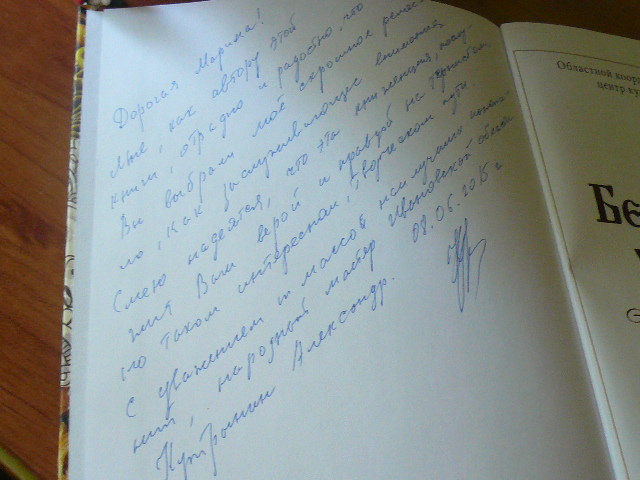 Дорогая Марина!
Мне, как автору этой
книги, отрадно и радостно, что
Вы выбрали моё скромное
ло, как заслуживающее внимания
Смею надеяться, что эта книженция, послу-
жит Вам верой и правдой на
но таком интересном, творческом пути
с уважением и массой наилучших
ний, народный мастер Ивановской
Александр. 08.06.2015 г
Областной коор
центр ку
Бе